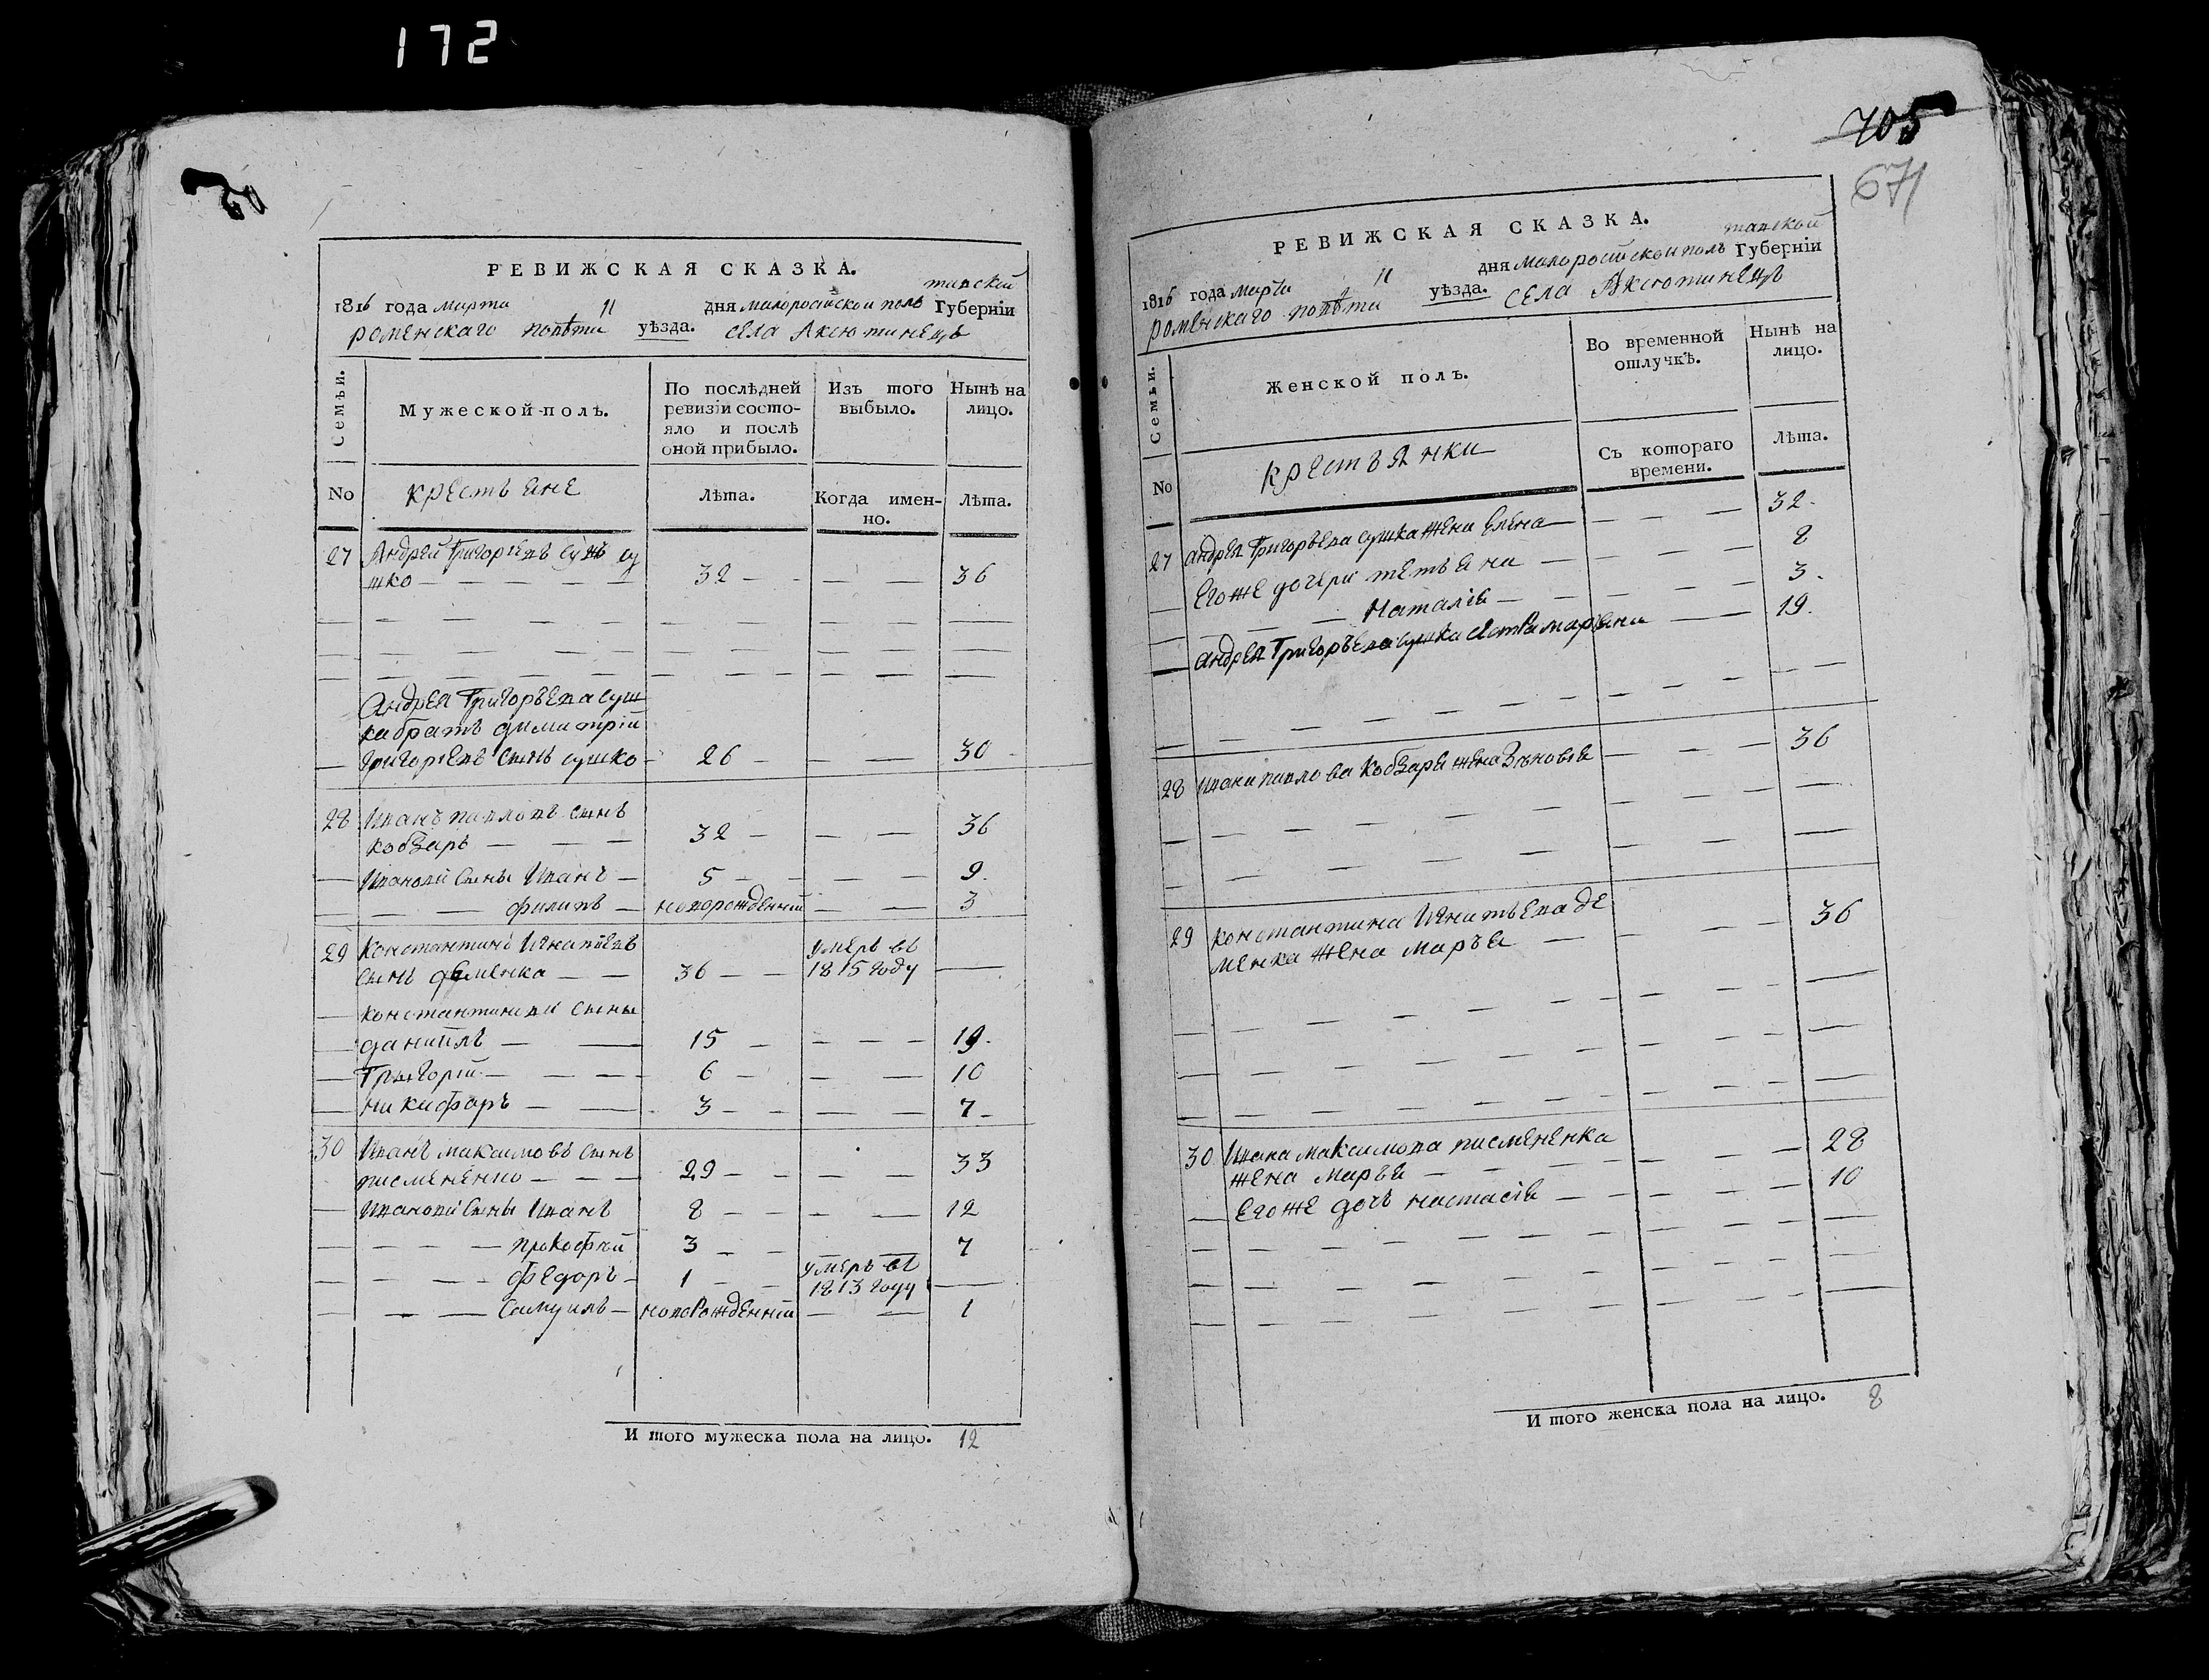 172
РЕВИЖСКАЯ СКАЗКА.
тавской
1816 года марта 11 дня малоросійской пол Губерніи
роменскаго повѣта уѣзда. села Аксютинецъ
Семьи.
Мужеской полъ.
По послѣдней ревизіи состояло и послѣ оной прибыло.
Изъ того выбыло.
Нынѣ на лицо.
No
крестьяне
Лѣта.
Когда именно.
Лѣта.
27 Андрей Григоріевъ сынъ су
шко — 32 — 36
Андрея Григорьева суш
ка братъ димитрій
Григоріевъ сынъ сушко — 26 — 30
28 Иванъ павловъ сынъ
кобзарь — 32 — 36
Ивановы сыны Иванъ — 5 — 9.
филипъ — новорожденний — 3
29 Константинъ Игнатіевъ умеръ въ
сынъ деменка — 36 — 1815 году —
константиновы сыны
даніилъ — 15 — 19.
Григорій — 6 — 10
никифоръ — 3 — 7
30 Иванъ максимовъ сынъ
писмененко — 29 — 33
Ивановы сыны Иванъ 8 — 12
прокофій 3 — 7
федоръ — 1 — умеръ въ 1813 году —
самуилъ — новорожденній — 1
И того мужеска пола на лицо. 12
705
671
РЕВИЖСКАЯ СКАЗКА.
тавской
1816 года марта 11 дня малоросійской пол Губерніи
роменскаго повѣта уѣзда. села Аксютинецъ
Семьи.
Женской полъ.
Во временной отлучкѣ.
Нынѣ на лицо.
No
крестьянки
Съ котораго времени.
Лѣта.
27 андрея Григорьева сушка жена елена — 32.
Егоже дочери тетьяна — 8
Наталія — 3.
андрея Григорьева сушка сестра марьяна — 19.
28 Ивана павлова кобзаря жена Зѣновія — 36
29 константина Игнатьева де
менка жена марья — 36
30 Ивана максимова писмененка
жена марья — 28
Егоже дочь настасія — 10
И того женска пола на лицо. 8